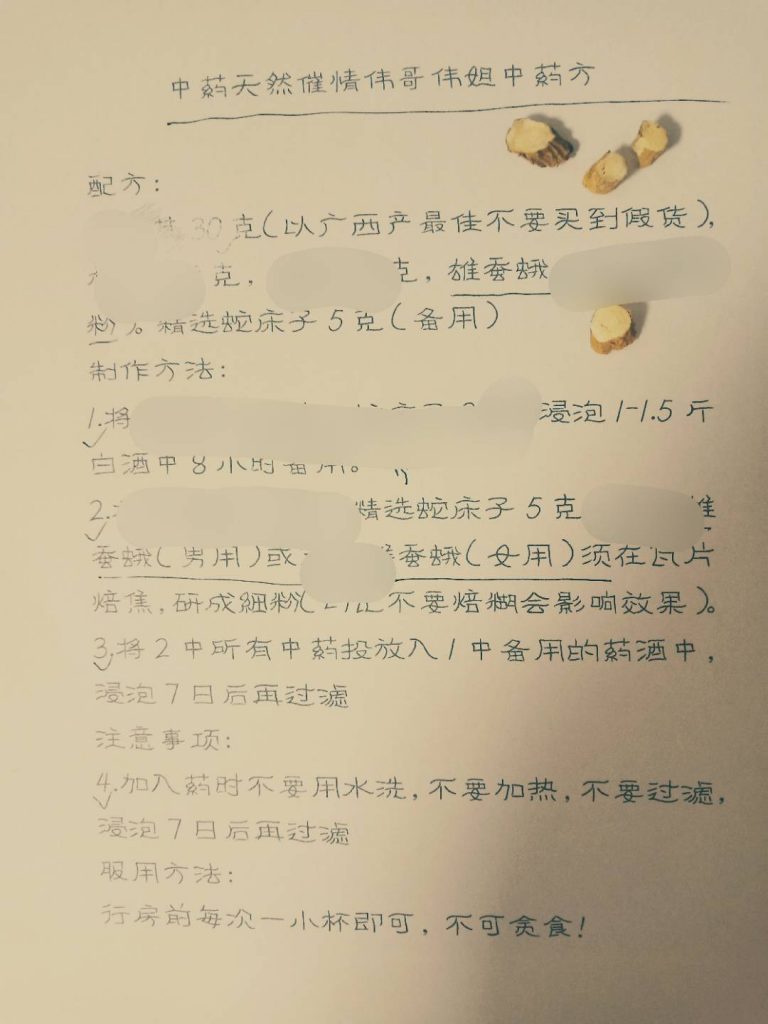 中药天然催情伟哥伟姐中药方
配方：
30克（以广西产最佳不要买到假货），
克，克，雄蚕蛾
粉。精选蛇床子5克（备用）
制作方法：
1.将浸泡1-1.5斤
白酒中8小时备用。
2.精选蛇床子5克雄
蚕蛾（男用）或蚕蛾（女用）须在瓦片
焙焦，研成細粉（不要焙糊会影响效果）。
3.将2中所有中药投放入1中备用的药酒中，
浸泡7日后再过滤
注意事项：
4.加入药时不要用水洗，不要加热，不要过滤，
浸泡7日后再过滤
服用方法：
行房前每次一小杯即可，不可贪食！